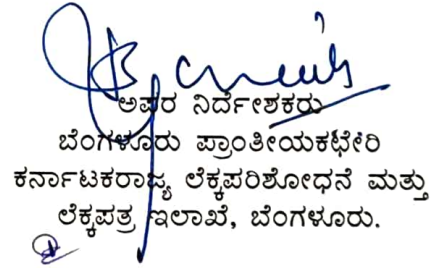 ಅಪರ ನಿರ್ದೇಶಕರು
ಬೆಂಗಳೂರು ಪ್ರಾಂತೀಯಕಛೇರಿ
ಕರ್ನಾಟಕರಾಜ್ಯ ಲೆಕ್ಕಪರಿಶೋಧನೆ ಮತ್ತು
ಲೆಕ್ಕಪತ್ರ ಇಲಾಖೆ, ಬೆಂಗಳೂರು.